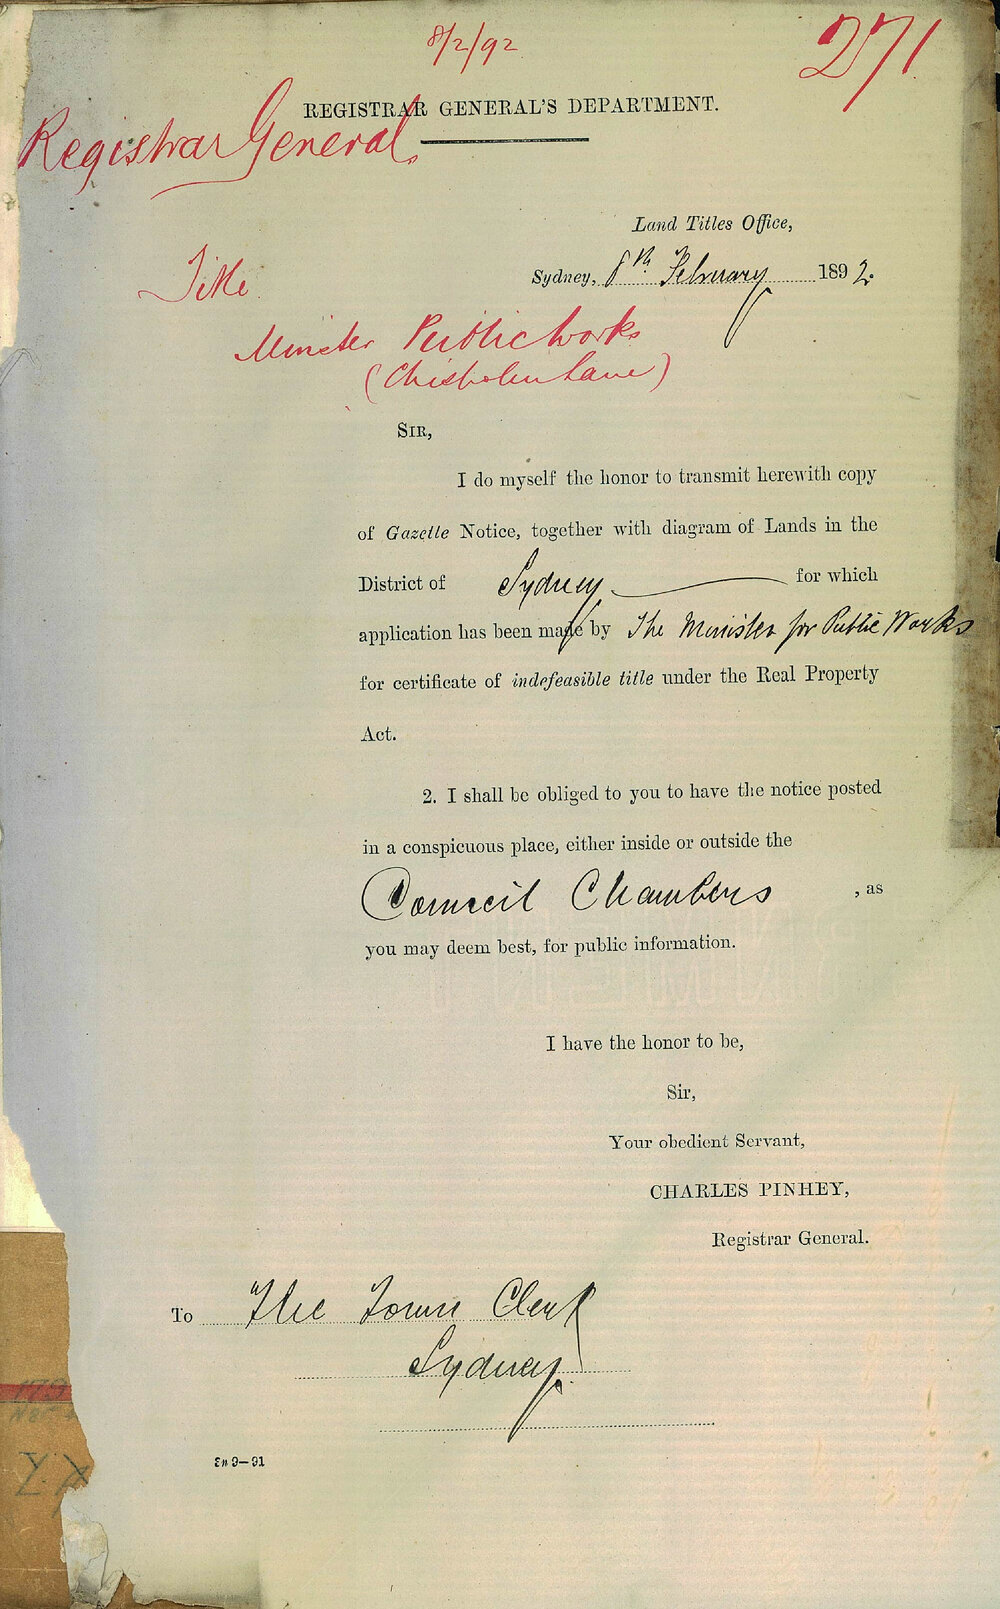 8/2/92
271
REGISTRAR GENERAL'S DEPARTMENT.
Registrar General
Land Titles Office,
Title
Sydney, 8th February 1892.
Minister Public Works
(Chisholm Lane)
SIR,
I do myself the honor to transmit herewith copy
of Gazette Notice, together with diagram of Lands in the
District of Sydney for which
application has been made by The Minister for Public Works
for certificate of indefeasible title under the Real Property
Act.
2. I shall be obliged to you to have the notice posted
in a conspicuous place, either inside or outside the
Council Chambers , as
you may deem best, for public information.
I have the honor to be,
Sir,
Your obedient Servant,
CHARLES PINHEY,
Registrar General.
To The Town Clerk
Sydney.
9—91